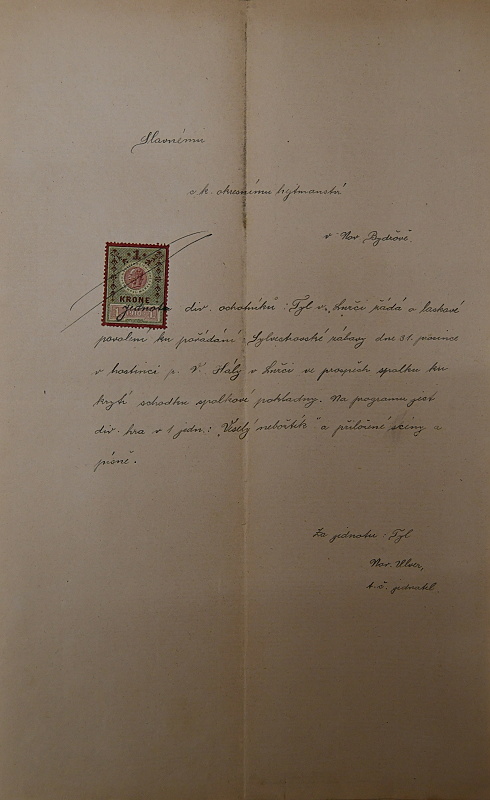 Slavnému
c. k. okresnímu hejtmanství
v Nov. Bydžově
1
KRONE
Jednota div. ochotníků "Tyl" v žádá o laskavé
povolení ku pořádání Sylvestrovské zábavy dne 31. prosince
v hostinci p. V. Hály v ve prospěch spolku ku
krytí schodku spolkové pokladny. Na programu jest
div. hra v 1 jedn.: "Veselý nebožtík" a přiložené scény a
písně.
Za jednotu "Tyl"
t. č. jednatel.